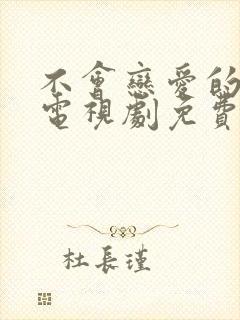 不會戀愛的
電視劇免費
杜長瑾